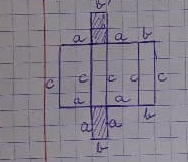 b
a a b
c c c c
a a b
a a
b